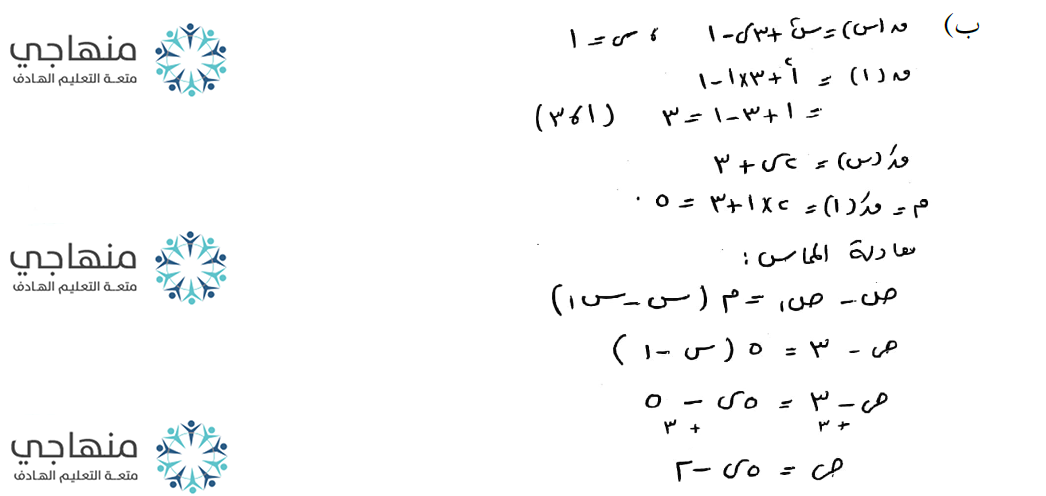 ب) ق(س) = س² + ٣س - ١ ، س = ١
ق(١) = ١² + ٣×١ - ١
= ١ + ٣ - ١ = ٣ (١، ٣)
قَ(س) = ٢س + ٣
م = قَ(١) = ٢×١ + ٣ = ٥
معادلة المماس :
ص - ص١ = م (س - س١)
ص - ٣ = ٥ (س - ١)
ص - ٣ = ٥س - ٥
+٣ +٣
ص = ٥س - ٢
منهاجي
متعة التعليم الهادف
منهاجي
متعة التعليم الهادف
منهاجي
متعة التعليم الهادف